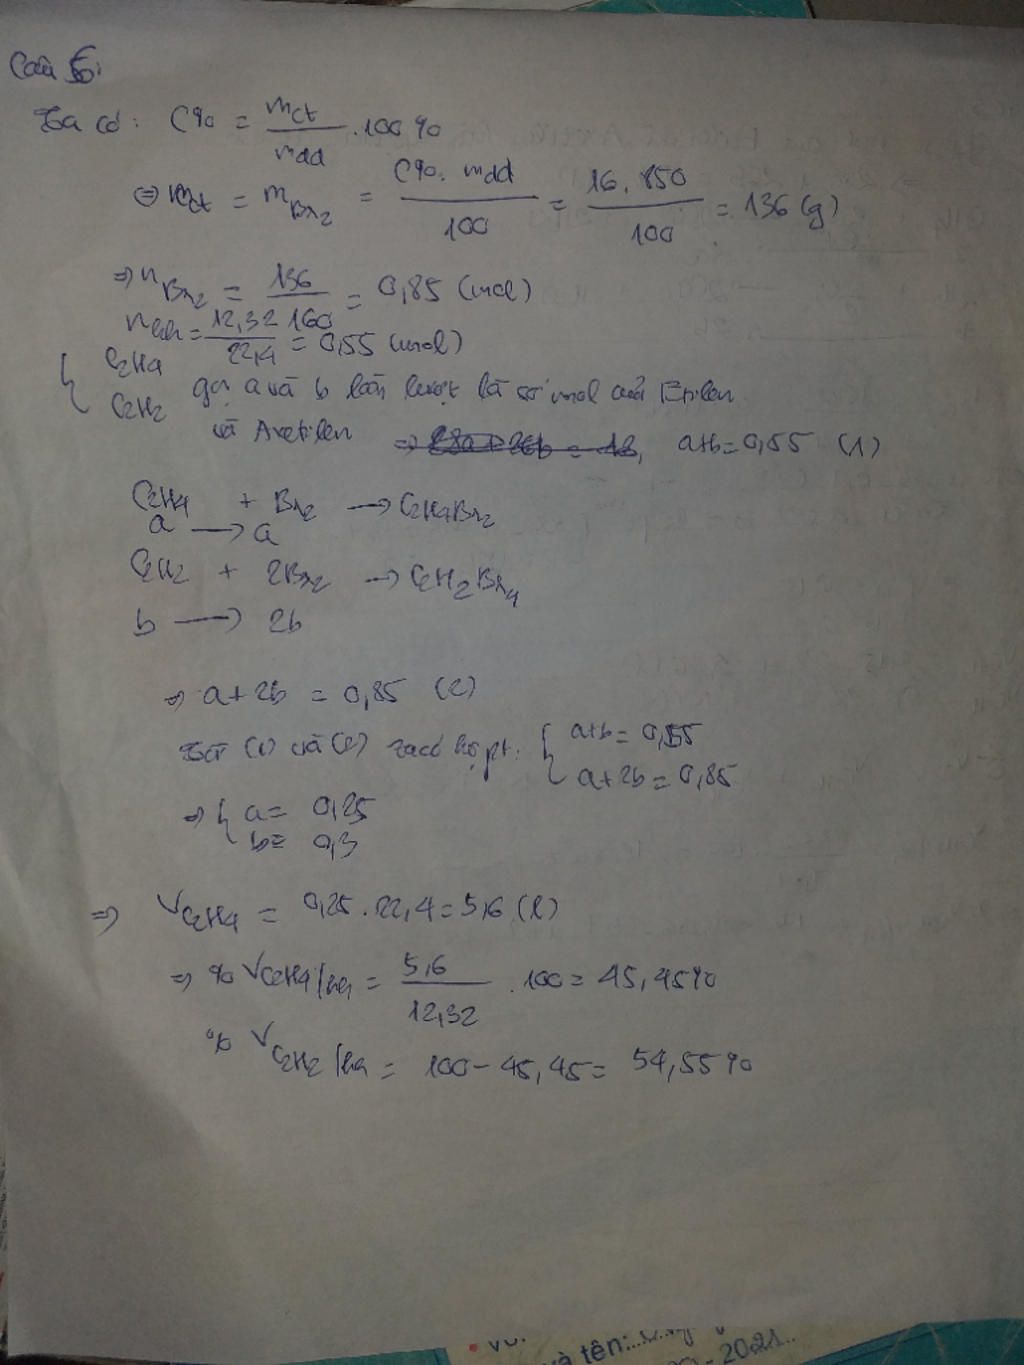 Câu 5:
Ta có: C% = mct / mdd . 100%
=> mct = mBr2 = C%. mdd / 100 = 16. 850 / 100 = 136 (g)
=> nBr2 = 136 / 160 = 0,85 (mol)
nhh = 12,32 / 22,4 = 0,55 (mol)
{ C2H4
C2H2 gọi a và b lần lượt là số mol của Etilen
và Axetilen => 28a + 26b = 18, a+b = 0,55 (1)
C2H4 + Br2 → C2H4Br2
a → a
C2H2 + 2Br2 → C2H2Br4
b → 2b
=> a + 2b = 0,85 (2)
Từ (1) và (2) ta có hệ pt: { a+b = 0,55
a + 2b = 0,85
=> { a = 0,25
b = 0,3
=> VC2H4 = 0,25 . 22,4 = 5,6 (l)
=> % VC2H4/hh = 5,6 / 12,32 . 100 = 45,45%
% VC2H2/hh = 100 - 45,45 = 54,55%
và tên:
- 2021